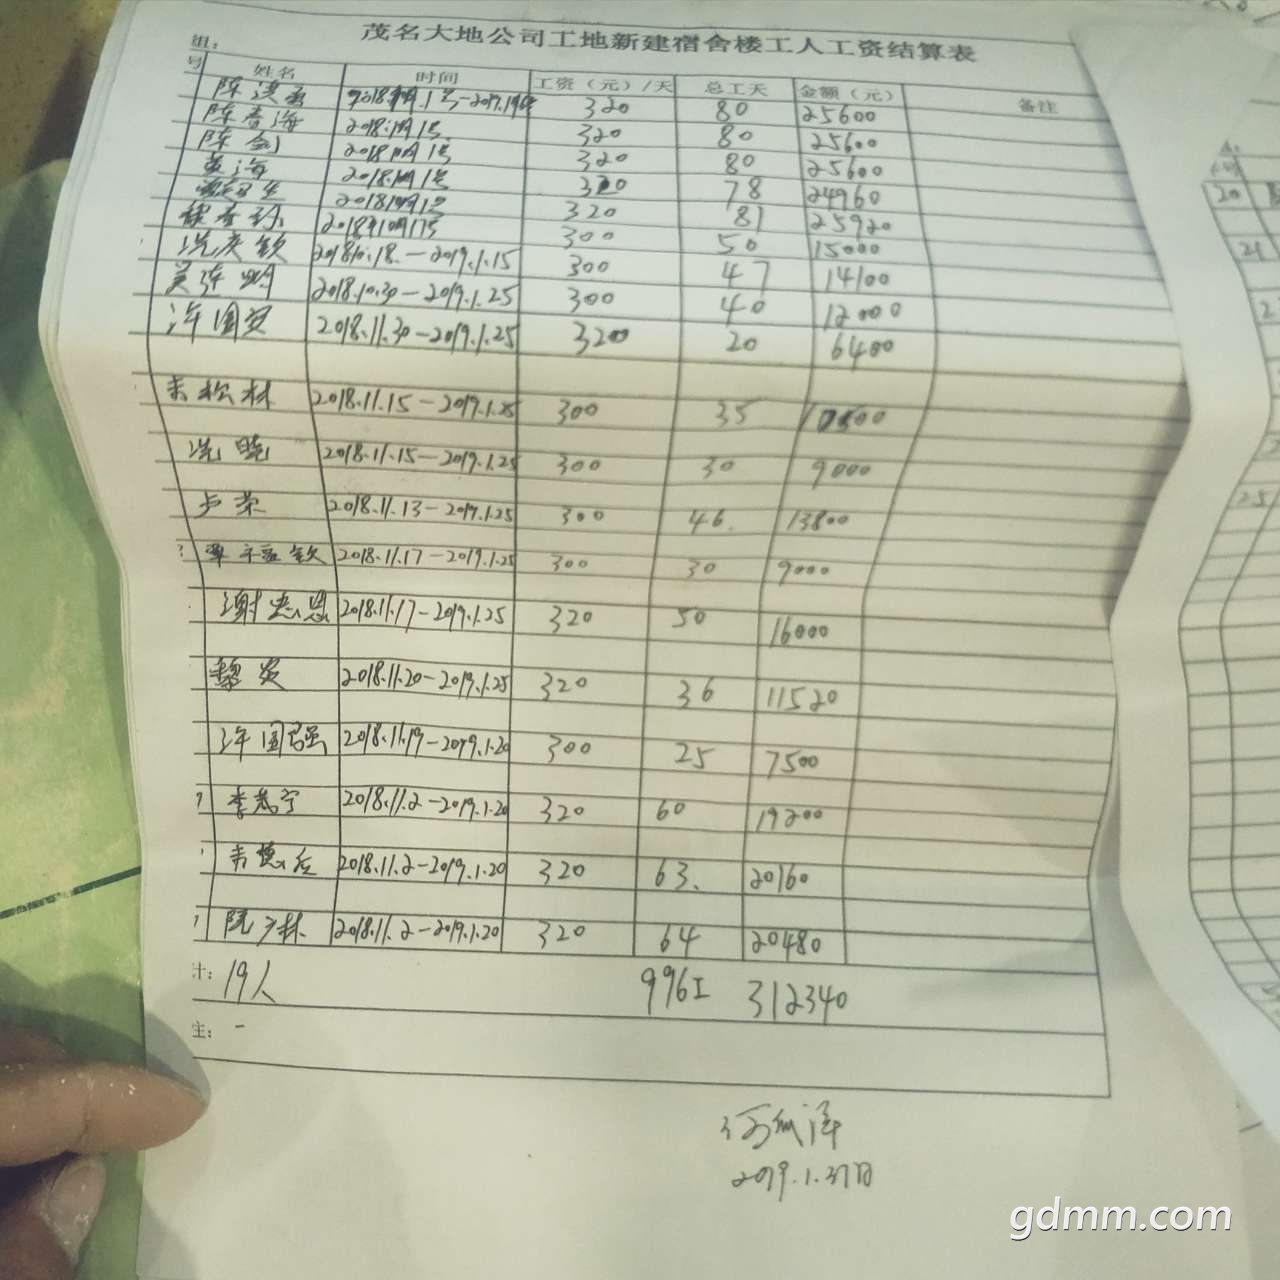 茂名大地公司工地新建宿舍楼工人工资结算表
组:
号 姓名 时间 工资（元）/天 总工天 金额（元） 备注
陈 320 80 25600
陈春海 2018.10月1号 320 80 25600
陈剑 2018 10月1号 320 80 25600
黄海 2018.10月1号 320 78 24960
2018 10月1号 320 81 25920
2018年10月17号 300 50 15000
冼庆钦 2018.10.18.—2019.1.15 300 47 14100
吴连明 2018.10.30—2019.1.25 300 40 12000
许国贤 2018.11.30—2019.1.25 320 20 6400
松林 2018.11.15—2019.1.25 300 35 10500
冼晓 2018.11.15—2019.1.25 300 30 9000
卢荣 2018.11.13—2019.1.25 300 46. 13800
2018.11.17—2019.1.25 300 30 9000
谢惠恩 2018.11.17—2019.1.25 320 50 16000
黎炎 2018.11.20—2019.1.25 320 36 11520
许国强 2018.11.19—2019.1.20 300 25 7500
李 宁 2018.11.2—2019.1.20 320 60 19200
2018.11.2—2019.1.20 320 63. 20160
阮 林 2018.11.2—2019.1.20 320 64 20480
计: 19人 996工 312340
注: -
2019.1.27日
20
21
25
gdmm.com